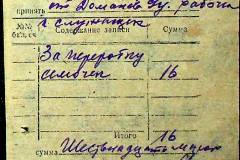 принять от Доманова Ф. рабочи
и служащих
№№ бух. сч. Содержание записи Сумма
За переротку
семечек 16
Итого 16
сумма Шестнадцать